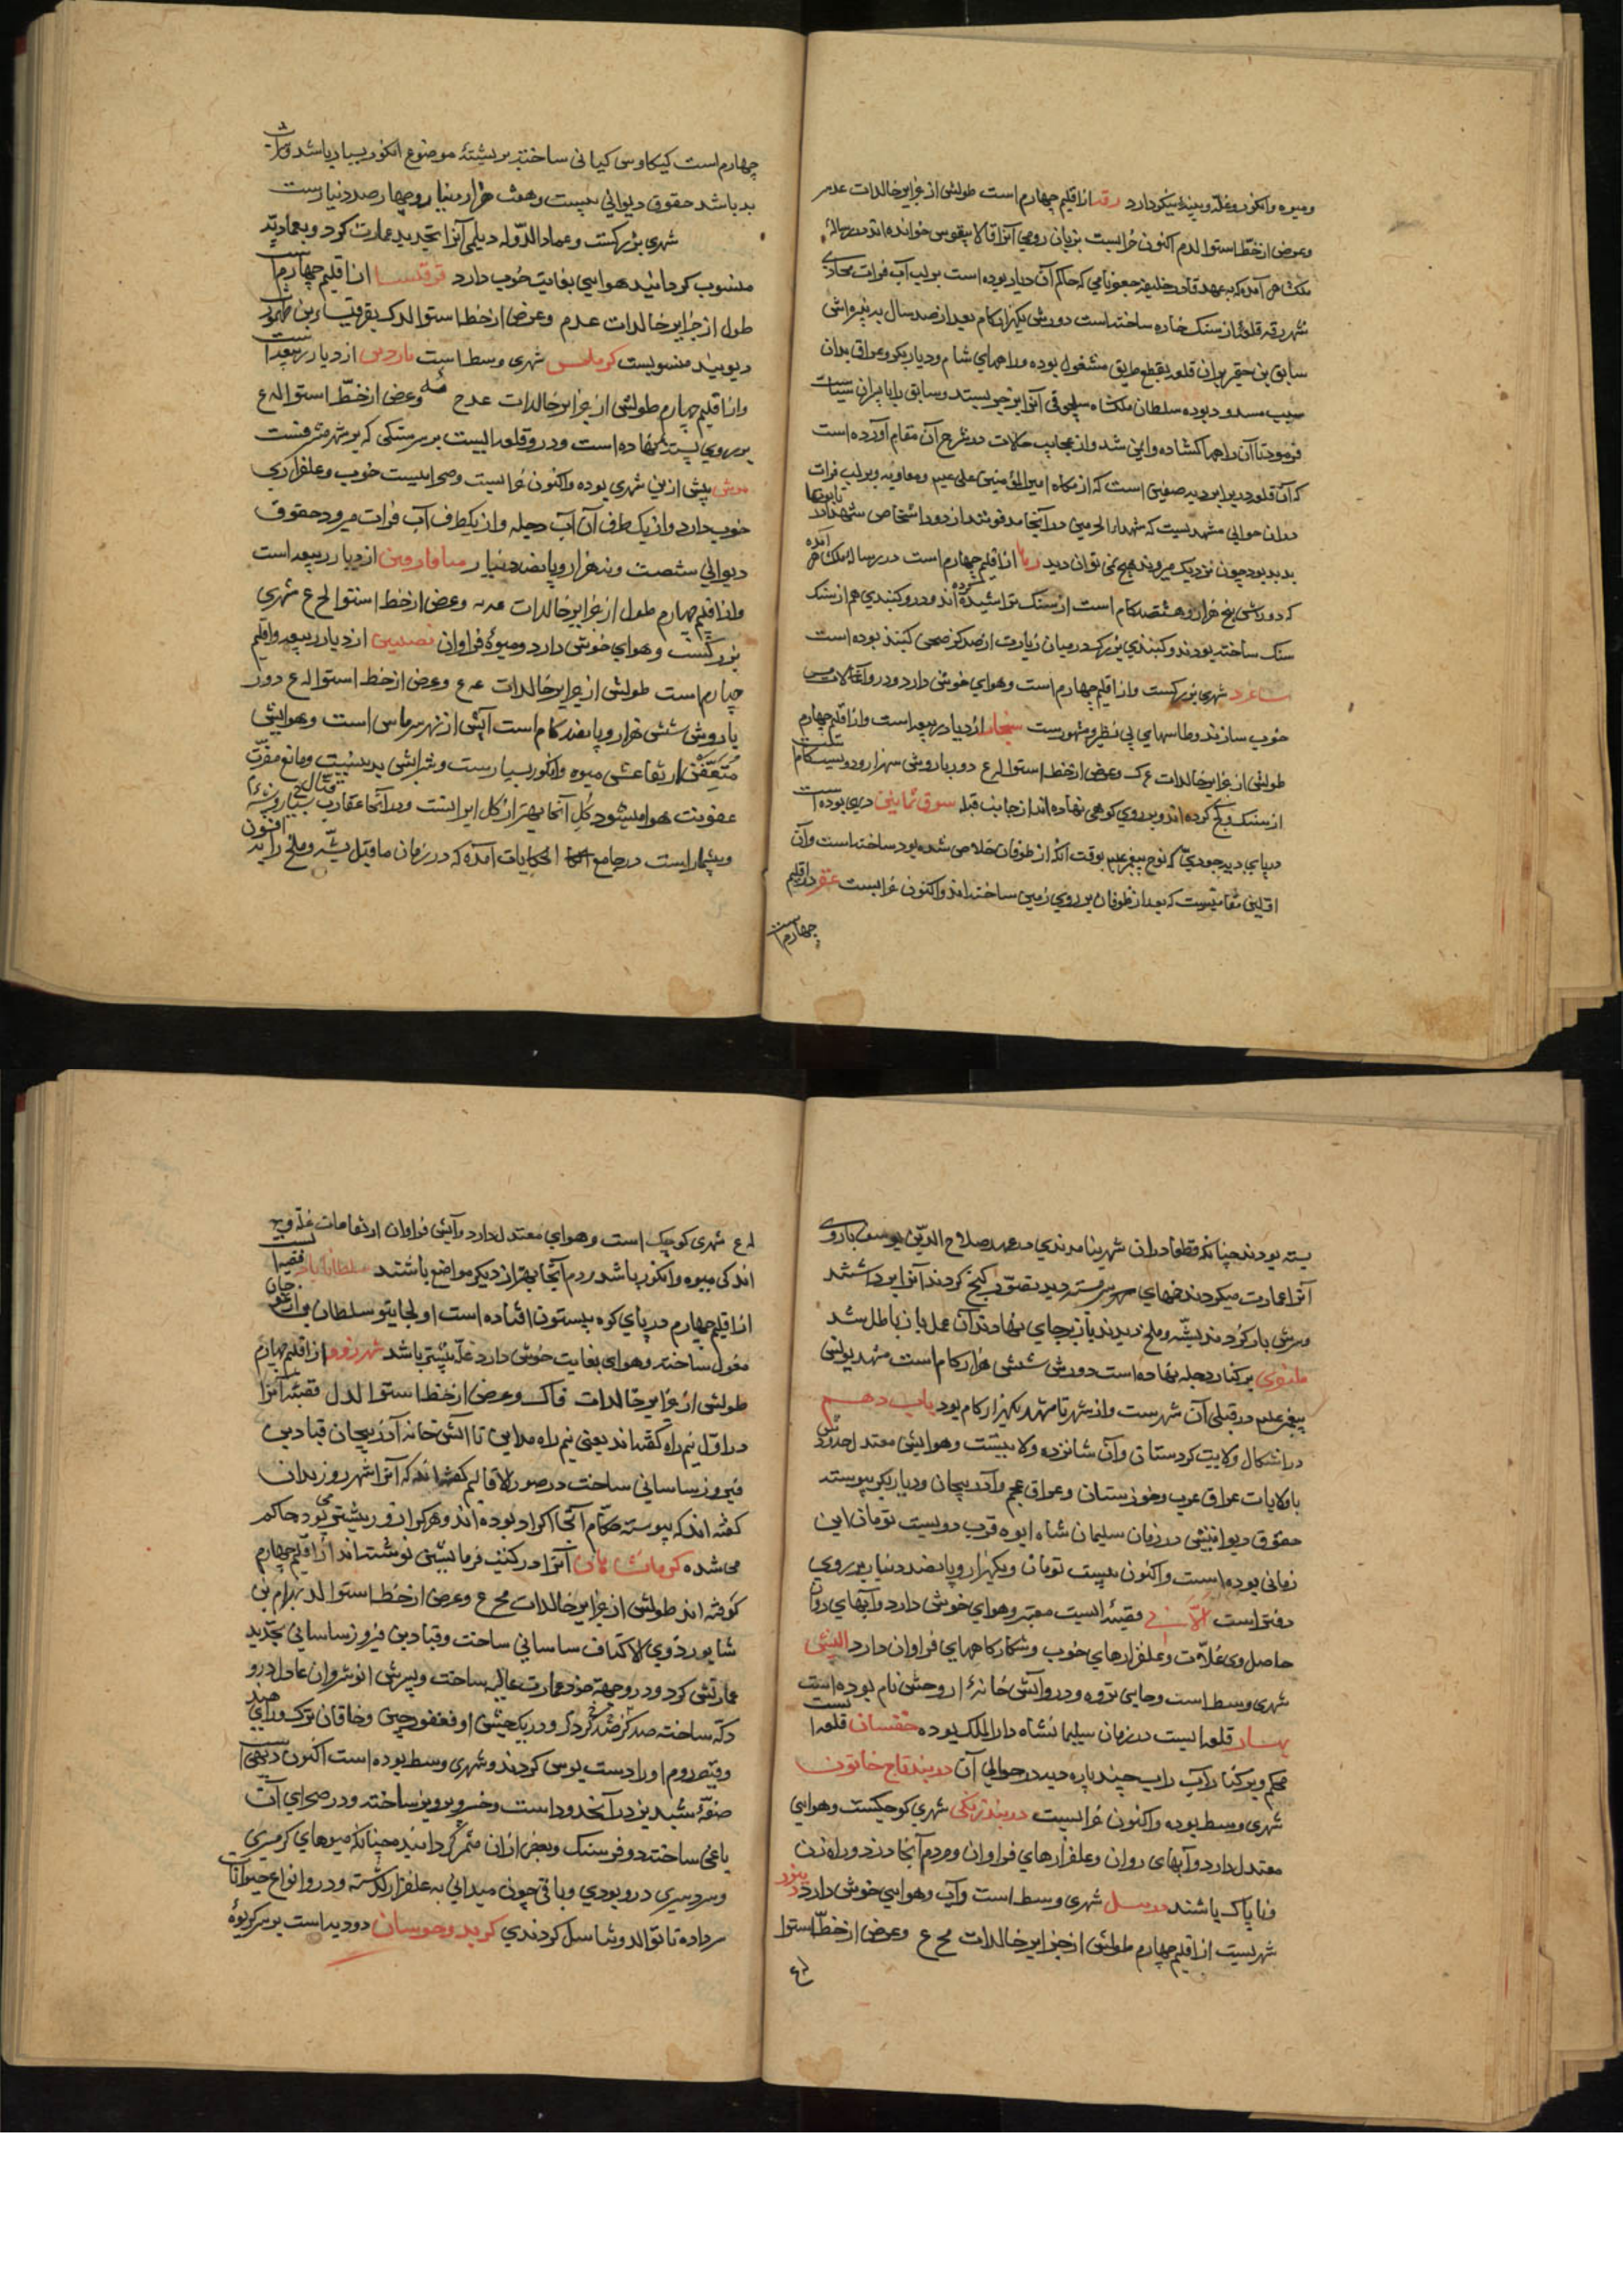 ومیوه وانکور وغلّه وپنبه نیکو دارد رقه از اقلیم چهارم است طولش از جزایر خالدات عدم
وعرض از خطّ استوا لدم اکنون خرابست بزبان رومی آنرا قالانیقوس خوانده اند در رسالهٔ
ملکشاهی آمده که بعهد قادر خلیفه جعفر نامی که حاکم آن دیار بوده است بر لب آب فرات محاذی
شهر رقه قلعهٔ از سنک خاره ساخته است دورش یکهزار کام بعد از صد سال بدنبیره اش
سابق بن جعفر بر آن قلعه بقطع طریق مشغول بوده وراههای شام ودیار بکر وعراق بدان
سبب مسدود بوده سلطان ملکشاه سلجوقی آنرا بر خود بستد وسابق را با پسران سیاست
فرمود تا آن راهها کشاده وایمن شد واز عجایب حکایات در شرح آن مقام آورده است
که آن قلعه در برابر دیه صفین است که از نکاه امیرالمؤمنین علی عیم ومعاویه وبر لب فرات
در آن حوالی مشهدیست که شهداء الحرمین در آنجا مدفونند از دور اشخاص شهدا در تابوتها
بدید بود چون نزدیک میروند هیچ نمی توان دید رها از اقلیم چهارم است در رساله ملکشاهی آمده
که دورش پنج هزار وهشتصد کام است از سنک تراشیده کرده اند ودرو کنبدی هم از سنک
سنک ساخته بودند وکنبدی بزرک در میان زیارت از صد کز صحن کنبد بوده است
ساعرد شهری بزرکست واز اقلیم چهارم است وهوای خوش دارد ودرو آلات مس
خوب سازند وطاسهای بی نظیر ومشهورست سنجار از دیار ربیعه است واز اقلیم چهارم
طولش از جزایر خالدات عک وعرض از خط استوا لع دور باروش سه هزار ودویست کام است
از سنک وکچ کرده اند وبر روی کوهی نهاده اند از جانب قبله سوق ثمانین دیهی بوده است
در پای دیه جودی که نوح پیغمبر عیم بوقت آنکه از طوفان خلاص شده بود ساخته است وآن
اوّلین مقامیست که بعد از طوفان بر روی زمین ساخته اند واکنون خرابست عقر در اقلیم
چهارم است
چهارم است کیکاوس کیانی ساخت بر پشتهٔ موضوع انکور بسیار باشد وشراب
بد باشد حقوق دیوانی بیست وهشت هزار دینار وچهار صد دینارست
شهری بزرکست وعماد الدّوله دیلمی آنرا تجدید عمارت کرد وبعمادیّه
منسوب کردانید هوایی بغایت خوب دارد قرقیسا از اقلیم چهارم است
طول از جزایر خالدات عدم وعرض از خط استوا لدک بقرقیسا بن طهمورث
دیوبند منسوبست کرملیس شهری وسط است ماردین از دیار ربیعه است
واز اقلیم چهارم طولش از جزایر خالدات عدح مه وعرض از خطّ استوا له ع
بر روی پشته نهاده است ودرو قلعه ایست بر سر سنکی که بر شهر مشرفست
موش پیش ازین شهری بوده واکنون خرابست وصحراییست خوب وعلفزاری
خوب دارد واز یک طرف آن آب دجله واز یکطرف آب فرات میرود حقوق
دیوانی شصت ونه هزار وپانصد دینار میافارقین از دیار ربیعه است
واز اقلیم چهارم طول از جزایر خالدات عدیه وعرض از خط استوا لح ع شهری
بزرکست وهوای خوش دارد ومیوهٔ فراوان نصیبین از دیار ربیعه واقلیم
چهارم است طولش از جزایر خالدات عه ع وعرض از خط استوا له ع دور
باروش شش هزار وپانصد کام است آبش از نهر هرماس است وهوایش
متعفّن ارتفاعش میوه وانکور بسیارست وشرابش بد نیست ومانع مضرّت
عفونت هوا میشود کل آنجا بهتر از کل ایرانست ودر آنجا عقارب قتال بسیار وپشه
وبیشمار است در جامع الحکایات آمده که در زمان ماقبل پشه وملخ را به افسون
بسته بودند چنانکه قطعا در آن شهر نیامدندی در عهد صلاح الدّین یوسف باروی
آنرا عمارت میکردند خمهای سر بسته دید بتصوّر کنج کردند آنرا برداشتند
وسرش باز کردند پشّه وملخ دیدند باز بر جای نهادند آن عمل بآن باطل شد
نینوی بر کنار دجله نهاده است دورش شش هزار کام است مشهد یونس
پیغمبر علیم در قبلی آن شهرست واز شهر تا مشهد یکهزار کام بود باب دهم
در اشکال ولایت کردستان وآن شانزده ولایتست وهوایش معتدل حدودش
با ولایات عراق عرب وخوزستان وعراق عجم وآذربیجان ودیار بکر پیوسته
حقوق دیوانیش در زمان سلیمان شاه ایوه قرب دویست تومان این
زمانی بوده است واکنون بیست تومان ویکهزار وپانصد دینار بر روی
دفتر است آلانی قصبه ایست معتبر وهوای خوش دارد وآبهای روان
حاصل وی غلات وعلفزارهای خوب وشکارکاههای فراوان دارد الیشتر
شهری وسط است وجایی نزه ودرو آتش خانهٔ اروخش نام بوده است
بهار قلعه ایست در زمان سلیمانشاه دار الملک بوده خفتیان قلعه ایست
محکم وبر کنار آب زاب چند پاره دیه در حوالی آن دربند تاج خاتون
شهری وسط بوده واکنون خرابست دربند زنکی شهری کوچکست وهوایی
معتدل دارد وآبهای روان وعلفزارهای فراوان ومردم آنجا دزد وراهزن
وناپاک باشند دزبیل شهری وسط است وآب وهوایی خوش دارد دینور
شهریست از اقلیم چهارم طولش از جزایر خالدات مح ع وعرض از خطّ استوا
له ع
له ع شهری کوچک است وهوای معتدل دارد وآبش فراوان ارتفاعات غله وپنبه
اندکی میوه وانکور باشد مردم آنجا بهتر از دیکر مواضع باشند سلطان اباد قصبه ایست
از اقلیم چهارم در پای کوه بیستون افتاده است اولجایتو سلطان بن ارغون خان
مغول ساخت وهوای بغایت خوش دارد غلّه بیشتر باشد شهرزور از اقلیم چهارم
طولش از جزایر خالدات فاک وعرض از خط استوا لدل قصبهٔ آنرا
در اوّل نیم راه کفته اند یعنی نیم راه مداین تا آتش خانه آذربیجان قباد بن
فیروز ساسانی ساخت در صور الاقالیم کفته اند که آنرا شهرزور بدان
کفته اند که پیوسته حکّام آنجا اکراد بوده اند وهر کرا زور بیشتر بود حاکم
می شده کرمانشاهان آنرا در کتب قرماسین نوشته اند از اقلیم چهارم
کرفته اند طولش از جزایر خالدات مح ع وعرض از خط استوا لد بهرام بن
شاپور ذوی الاکتاف ساسانی ساخت وقباد بن فیروز ساسانی تجدید
عمارتش کرد ودرو جهت خود عمارت عالیه ساخت وپسرش انوشروان عادل درو
دکه ساخته صد کز در صد کز ودر یک جشن او فغفور چین وخاقان ترک ورای هند
وقیصر روم او را دست بوس کردند وشهری وسط بوده است اکنون دیهی است
صفّهٔ شبدیز در آنحدود است وخسرو پرویز ساخته ودر صحرای آن
باغی ساخته دو فرسنک وبعضی از آن مثمر کردانیده چنانکه میوهای کرمسیری
وسردسیری درو بودی وباقی چون میدانی به علفزار کذاشته ودرو انواع حیوانات
سر داده تا توالد وتناسل کردندی کرند وخوشان دو دیه است بر سر کریوهٔ